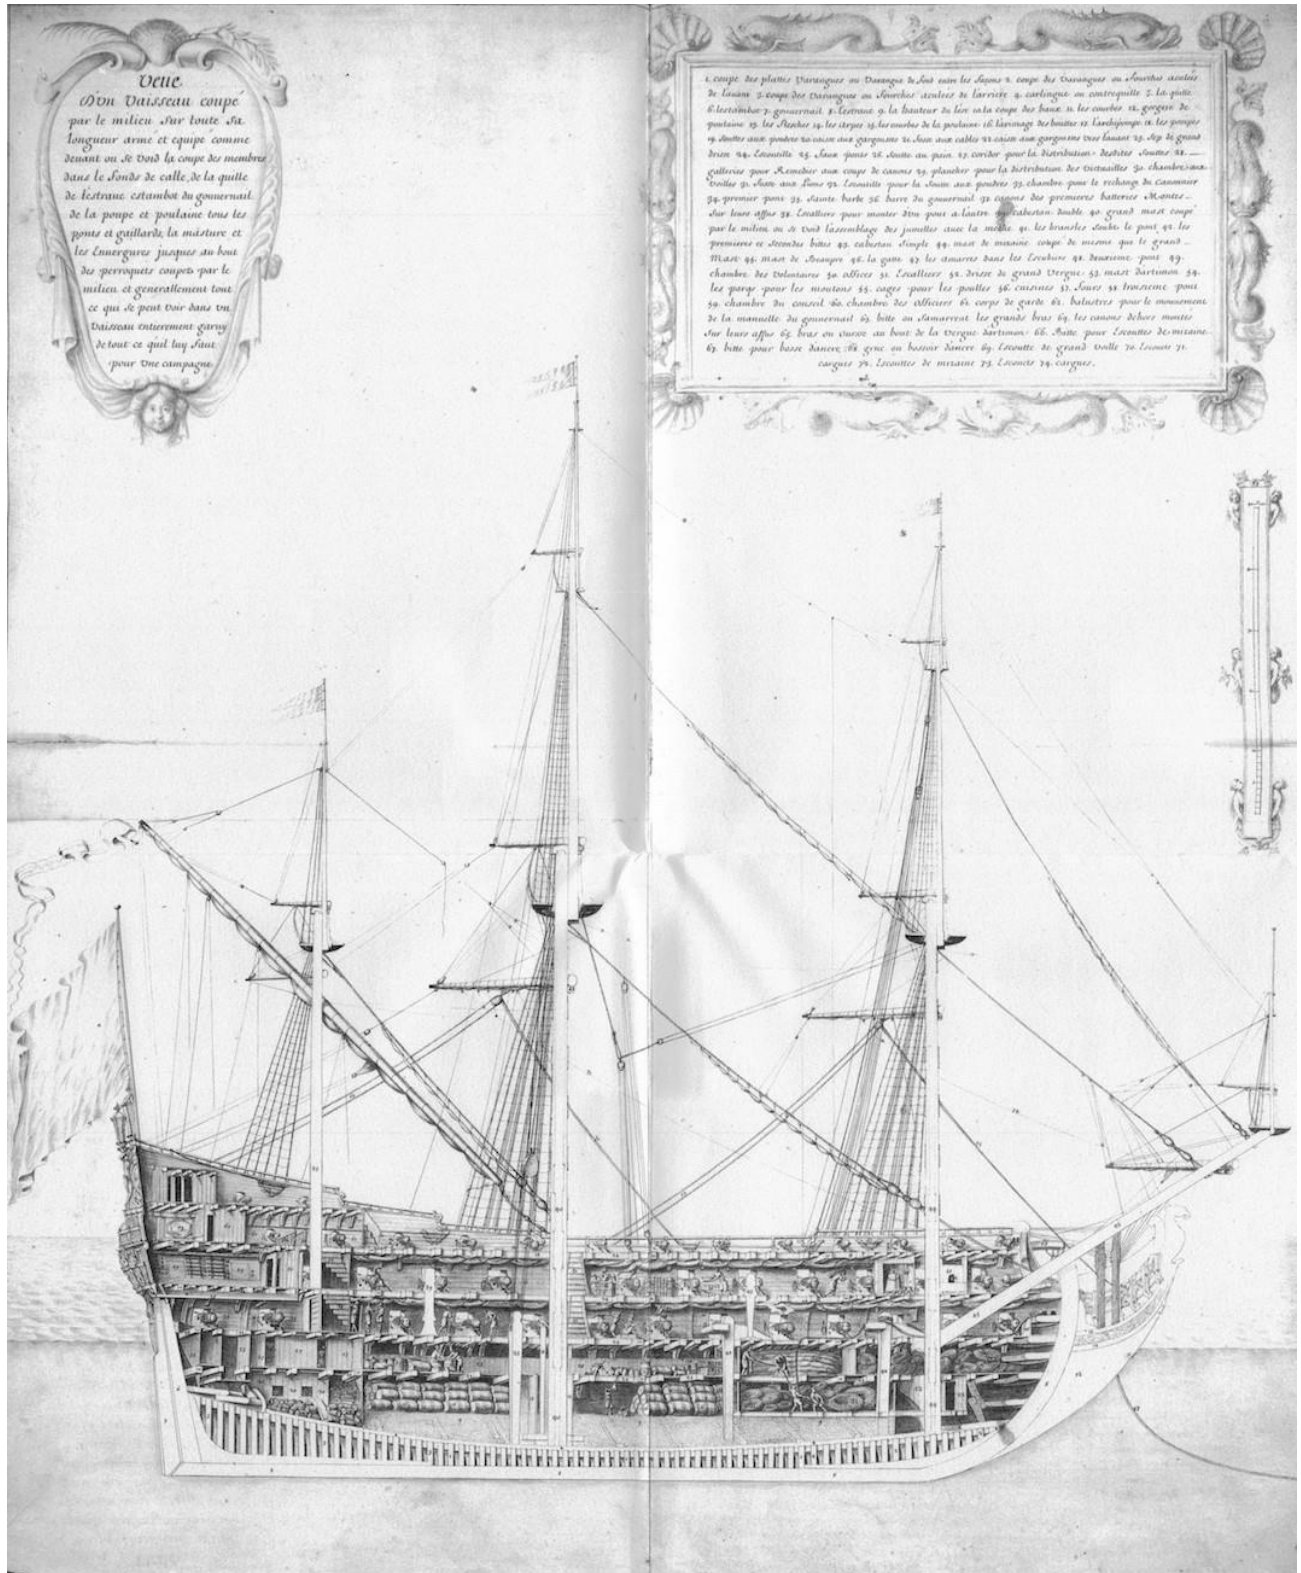 Veue
D'vn Vaisseau coupé
par le milieu sur toute sa
longueur armé et equipé comme
deuant ou se void la coupe des membres
dans le fonds de calle, de la quille
de lestraue estambot du gouuernail
de la poupe et poulaine tous les
ponts et gaillards, la mâsture et
les Enuergures jusques au bout
des perroquets coupets par le
milieu et generallement tout
ce qui se peut voir dans vn
Vaisseau entierement garny
de tout ce quel luy faut
pour vne campagne
1. coupe des plattes Varangues ou Varangue de fond entre les façons 2. coupe des Varangues ou fourchus aculees
de lauant 3. coupe des Varangues ou fourchus aculees de larriere 4. carlingue ou contrequille 5. la quille
6. lestambot 7. gouuernail 8. lestraue 9. la hauteur de la coupe des baux 11. les courbes 12. gorgere de
poulaine 13. les flesches 14. les arpes 15. les courbes de la poulaine 16. larimage des bouttes 17. larchipompe 18. les pompes
19. souttes aux poudres 20. caisse aux gargousses 21. fosse aux cables 22. caisse aux gargousses vers lauant 23. sep de grand
drisse 24. Escoutille 25. faux ponts 26. soutte au pain 27. coridor pour la distribution desdites souttes 28.
galleries pour Remedier aux coups de canons 29. plancher pour la distribution des victuailles 30. chambre aux
voilles 31. fosse aux lions 32. Escoutille pour la soutte aux poudres 33. chambre pour le rechange du canonnier
34. premier pont 35. Sainte barbe 36. barre du gouuernail 37. canons des premieres batteries Montes
sur leurs affus 38. Escalliers pour monter d'vn pont a lautre cabestan double 40. grand mast coupé
par le milieu ou se void lassemblage des jumelles auec la meche 41. les bransles soubs le pont 42. les
premieres et secondes bittes 43. cabestan simple 44. mast de mizaine coupé de mesme que le grand
Mast 45. mast de Beaupre 46. la gatte 47. les amarres dans les Escubiers 48. deuxieme pont 49.
chambre des Volontaires 50. offices 51. Escalliers 52. drisse de grand Vergue 53. mast dartimon 54.
les pargs pour les moutons 55. cages pour les poulles 56. cuisines 57. fours 58. troisieme pont
59. chambre du conseil 60. chambre des officiers 61. corps de garde 62. balustres pour le mouuement
de la manuelle du gouuernail 63. bitte ou samarrent les grands bras 64. les canons dehors montés
sur leurs affus 65. bras ou au bout de la Vergue dartimon 66. Bitte pour Escouttes de mizaine
67. bitte pour bosse dancre 68. grue ou bossoir dancre 69. Escoutte de grand voille 70. Escouets 71.
cargues 72. Escouttes de mizaine 73. Escouets 74. cargues.